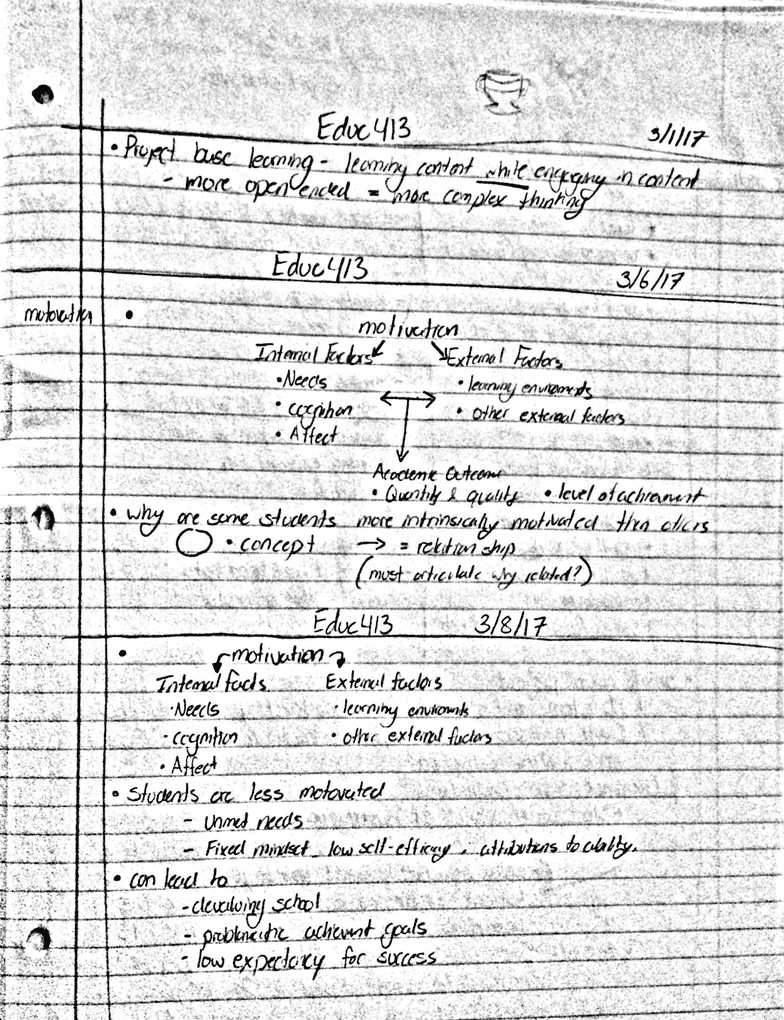 Educ 413 3/1/17
• Project base learning - learning content while engaging in content
- more open ended = more complex thinking
Educ 413 3/6/17
motovation •
motivation
Internal Factors External Factors
• Needs • learning enviroments
• cognition • other external factors
• Affect
Academic Outcome
• Quantity & quality • level of achievment
• why are some students more intrinsically motivated then others
• concept → = relationship
(must articulate why related?)
Educ 413 3/8/17
• motivation
Internal Facts External factors
• Needs • learning enviroments
• cognition • other external factors
• Affect
• Students are less motovated
- Unmet needs
- Fixed mindset, low self-efficacy, attributions to ability.
• can lead to
- devaluing school
- problematic achievment goals
- low expectancy for success